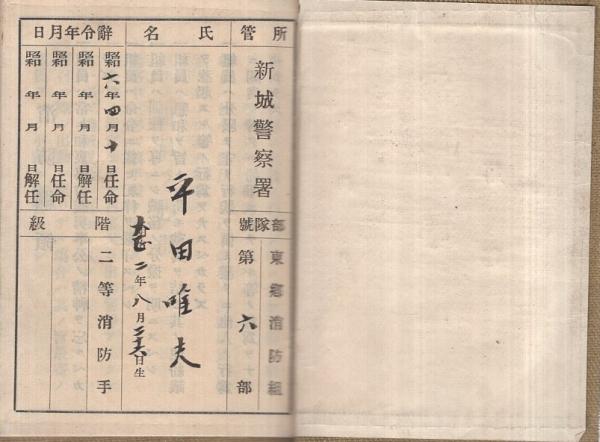 所管
新城警察署
部隊號
東郷消防組
第六部
氏名
平田唯夫
大正二年八月二十六日生
辭令年月日
昭六年四月十日任命
昭 年 月 日解任
昭 年 月 日任命
昭 年 月 日解任
階級
二等消防手